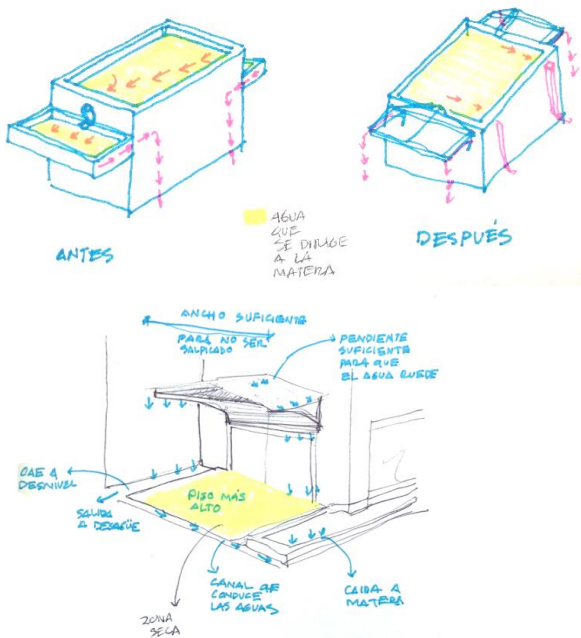 ANTES
AGUA
QUE
SE DIRIGE
A LA
MATERA
DESPUÉS
ANCHO SUFICIENTE
PARA NO SER
SALPICADO
PENDIENTE
SUFICIENTE
PARA QUE
EL AGUA RUEDE
CAE A
DESNIVEL
SALIDA
A DESAGÜE
PISO MÁS
ALTO
CANAL QUE
CONDUCE
LAS AGUAS
CAIDA A
MATERA
ZONA
SECA